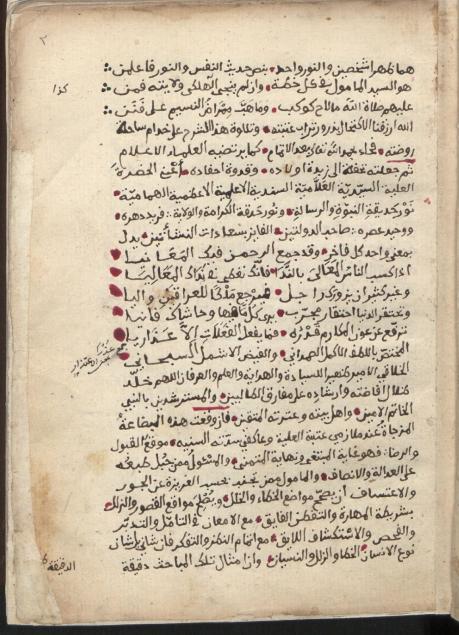 ٢
هما ظهرا شخصين والنور واحد بنص حديث النفس والنور فاعلمن
هو السيد المأمول في كل خطة وان لم ينجى الهلكى ولايته فمن
كذا
عليهم صلاة الله ما لاح كوكب وما هب ممراض النسيم على فنن
الله ارزقنا الاكتحال بزورتراب عتبته وتلاوة هذا الشرح على خدام ساحة
روضته فجاء بحمد الله تعالى بعد الاتمام كما يرتضيه العلماء الاعلام
ثم جعلته تحفة الى زبدة اولاده وقدوة احفاده أعني الحضرة
العلية السيدية العلامية السندية الاعلمية الاعظمية الهمامية
نور حديقة النبوة والرسالة ونور حدقة الكرامة والولاية فريد دهره
ووحيد عصره صاحب الدولتين الفايز بسعادات النشأتين يدل
بمعنى واحد كل فاخر وقد جمع الرحمن فيك المعانيا
اذا كسب الناس المعالي بالندا فانك تعطي في نداك المعاليا
وغير كثير ان يزورك راجل فيرجع ملكا للعراقين واليا
وتحتقر الدنيا احتقار مجرب يرى كل ما فيها وحاشاك فانيا
ترفع عن عون المكارم قدره فما يفعل الفعلات الا عذاريا
المختص باللطف الاكمل الصمداني والفيض الاشمل السبحاني
للسيادة والهداية والعلم والعرفان اللهم خلد
ظلال افاضته وارشاده على مفارق الطالبين والمسترشدين بالنبي
الخاتم الامين واهل بيته وعترته المتقين فان وقعت هذه البضاعة
المزجاة عند ملازمي عتبة العلية وعاكفي سدته السنية موقع القبول
والرضا فهو غاية المبتغى ونهاية المتمنى والمسئول ممن جبل طبيعته
على العدالة والانصاف والمأمول ممن يجتنب بحسب الغريزة عن الجور
والاعتساف أن يصحح مواضع الخطاء والخلل ويصلح مواقع القصور والزلل
بشريطة المهارة والتفطن الفايق مع الامعان في التأمل والتدبر
والفحص والاستكشاف اللايق مع اتمام النظر والتفكر فان شأن
نوع الانسان الخطاء والزلل والنسيان وان امثال تلك المباحث دقيقة
الدقيقة